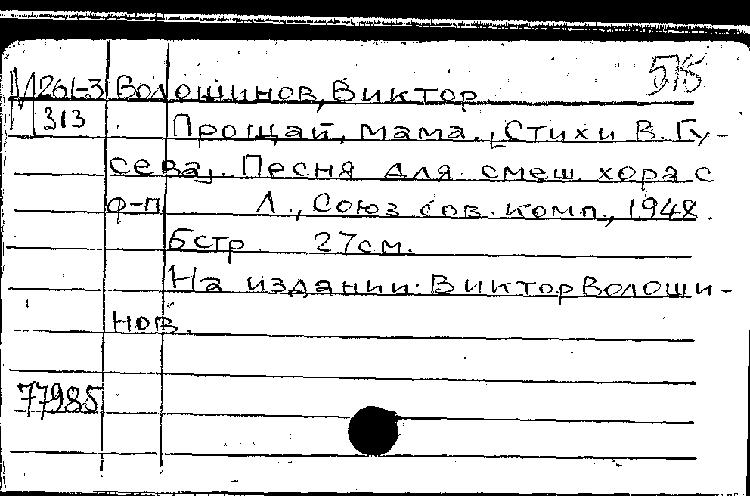 515
М261-3 Волошинов, Виктор
313 Прощай, мама. [Стихи В. Гу-
сева]. Песня для смеш. хора с
ф-п Л., Союз сов. комп., 1948.
6стр. 27см.
На издании: Виктор Волоши-
нов.
77985